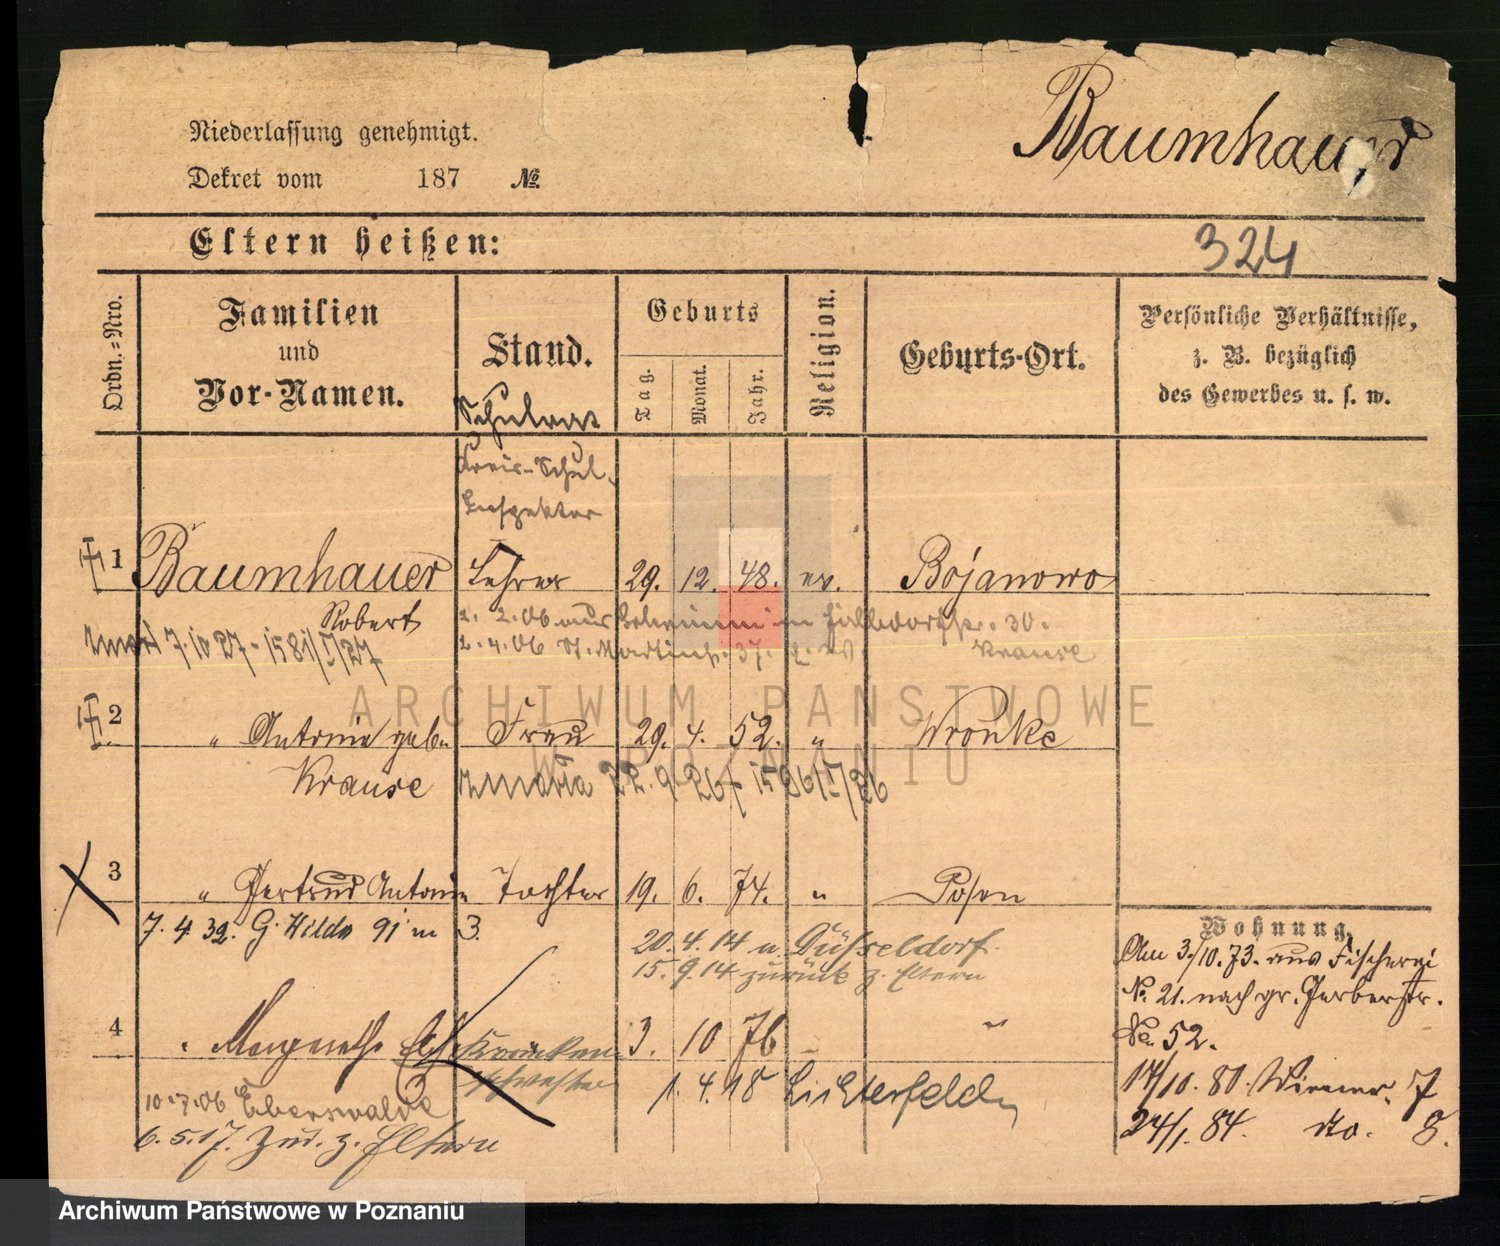 Niederlassung genehmigt.
Dekret vom 187 №
Baumhauer
Eltern heißen:
324
Ordn.=Nro.
Familien
und
Vor-Namen.
Stand.
Geburts
Tag.
Monat.
Jahr.
Religion.
Geburts-Ort.
Persönliche Verhältnisse,
z. B. bezüglich
des Gewerbes u. s. w.
Schulrat
Kreis-Schul-
Inspektor
1 Baumhauer Lehrer 29. 12. 48. ev. Bojanowo
Robert
2. 2. 06 aus 30.
2. 4. 06 St. Martinstr. 37. Krause
zmarł 7. IV 27 - 1581/I/27
ARCHIWUM PAŃSTWOWE
W POZNANIU
2 " Antonie geb. Frau 29. 4. 52. " Wronke
Krause
zmarła 22. 9. 26
3 " Gertrud Antonie Tochter 19. 6. 74. " Posen
7. 4. 32. G. 91 m 3.
20. 4. 14 n. Düsseldorf.
15. 9. 14 zurück z. Eltern
4 " Margarethe Kranken 3. 10 76 "
schwester 1. 4. 18 Lichterfelde
10. 7. 06 Eberswalde
6. 5. 17. zur. z. Eltern
Wohnung.
Am 3./10. 73. aus Fischerei
No. 21. nach gr. Gerberstr.
No. 52.
17/10. 80. 7
24/1. 84. do. 8.
Archiwum Państwowe w Poznaniu